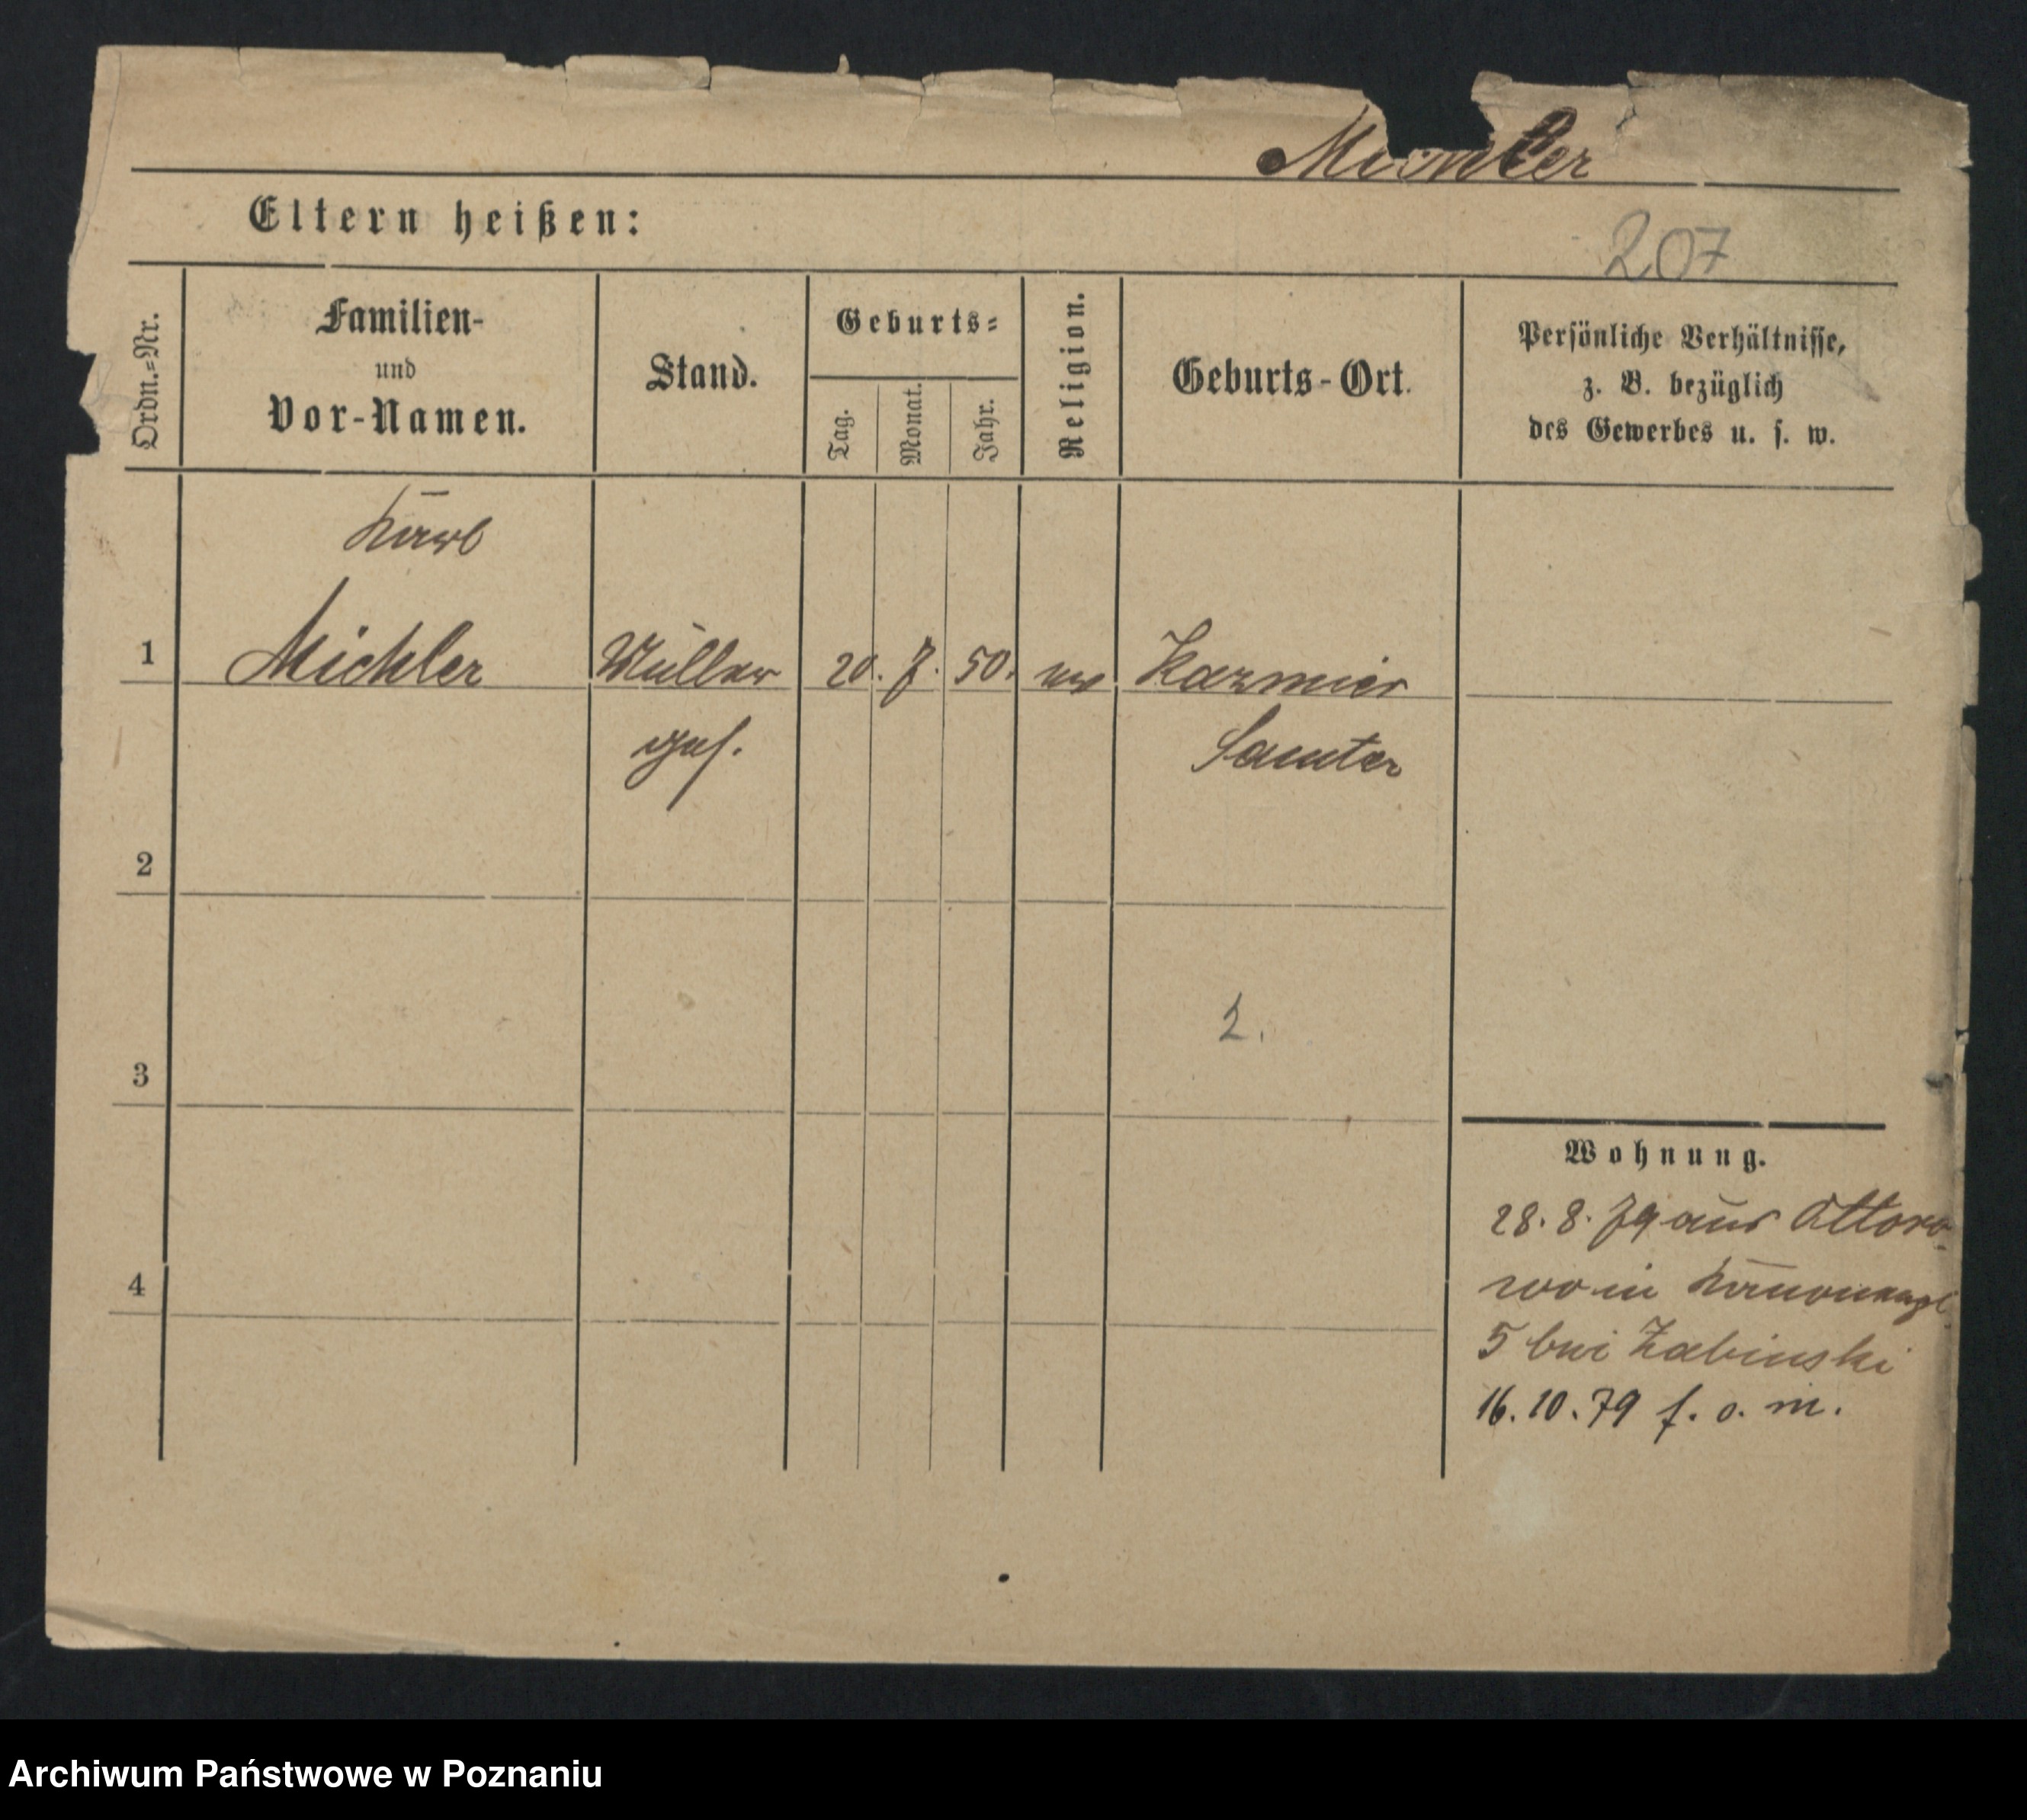 Michler
Eltern heißen:
207
Ordn.-Nr.
Familien-
und
Vor-Namen.
Stand.
Geburts-
Tag.
Monat.
Jahr.
Religion.
Geburts-Ort.
Persönliche Verhältnisse,
z. B. bezüglich
des Gewerbes u. s. w.
Karl
1 Michler Müller 20. 7. 50. ev Kazmierz
ges. Samter
2
2.
3
Wohnung.
28. 8. 79 aus Ottoro-
4
wo in
5 bei Zabinski
16. 10. 79 f. o. m.
Archiwum Państwowe w Poznaniu